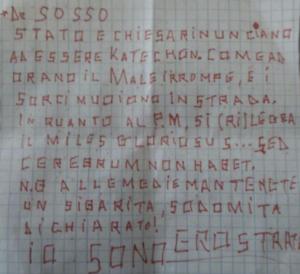 * De SOSSO
STATO E CHIESA RINUNCIANO
AD ESSERE KATECHON. COM GAD
ORANO IL MALE IRROMPE, E I
SORCI MUOIONO IN STRADA.
IN QUANTO AL P.M, SI (RI)LEGGA
IL MILES GLORIOSUS... SED
CEREBRUM NON HABET.
N.B ALLE MEDIE MANTENETE
UN SIBARITA, SODOMITA
DICHIARATO!
IO SONO EROSTRATO